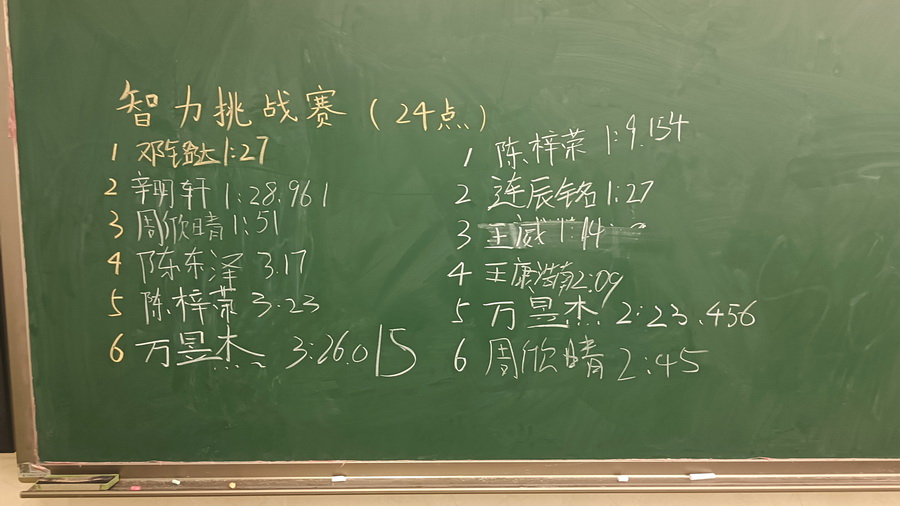 智力挑战赛（24点）
1 邓 达 1:27
2 辛明轩 1:28.961
3 周欣晴 1:51
4 陈东泽 3.17
5 陈梓荣 3.23
6 万昱杰 3:26.015
1 陈梓荣 1:9.154
2 连辰铭 1:27
3 王威 1:14
4 王康 2:09
5 万昱杰 2:23.456
6 周欣晴 2:45